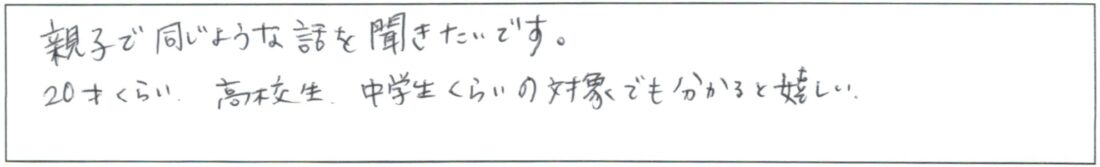 親子で同じような話を聞きたいです。
20才くらい. 高校生. 中学生くらいの対象でも分かると嬉しい.